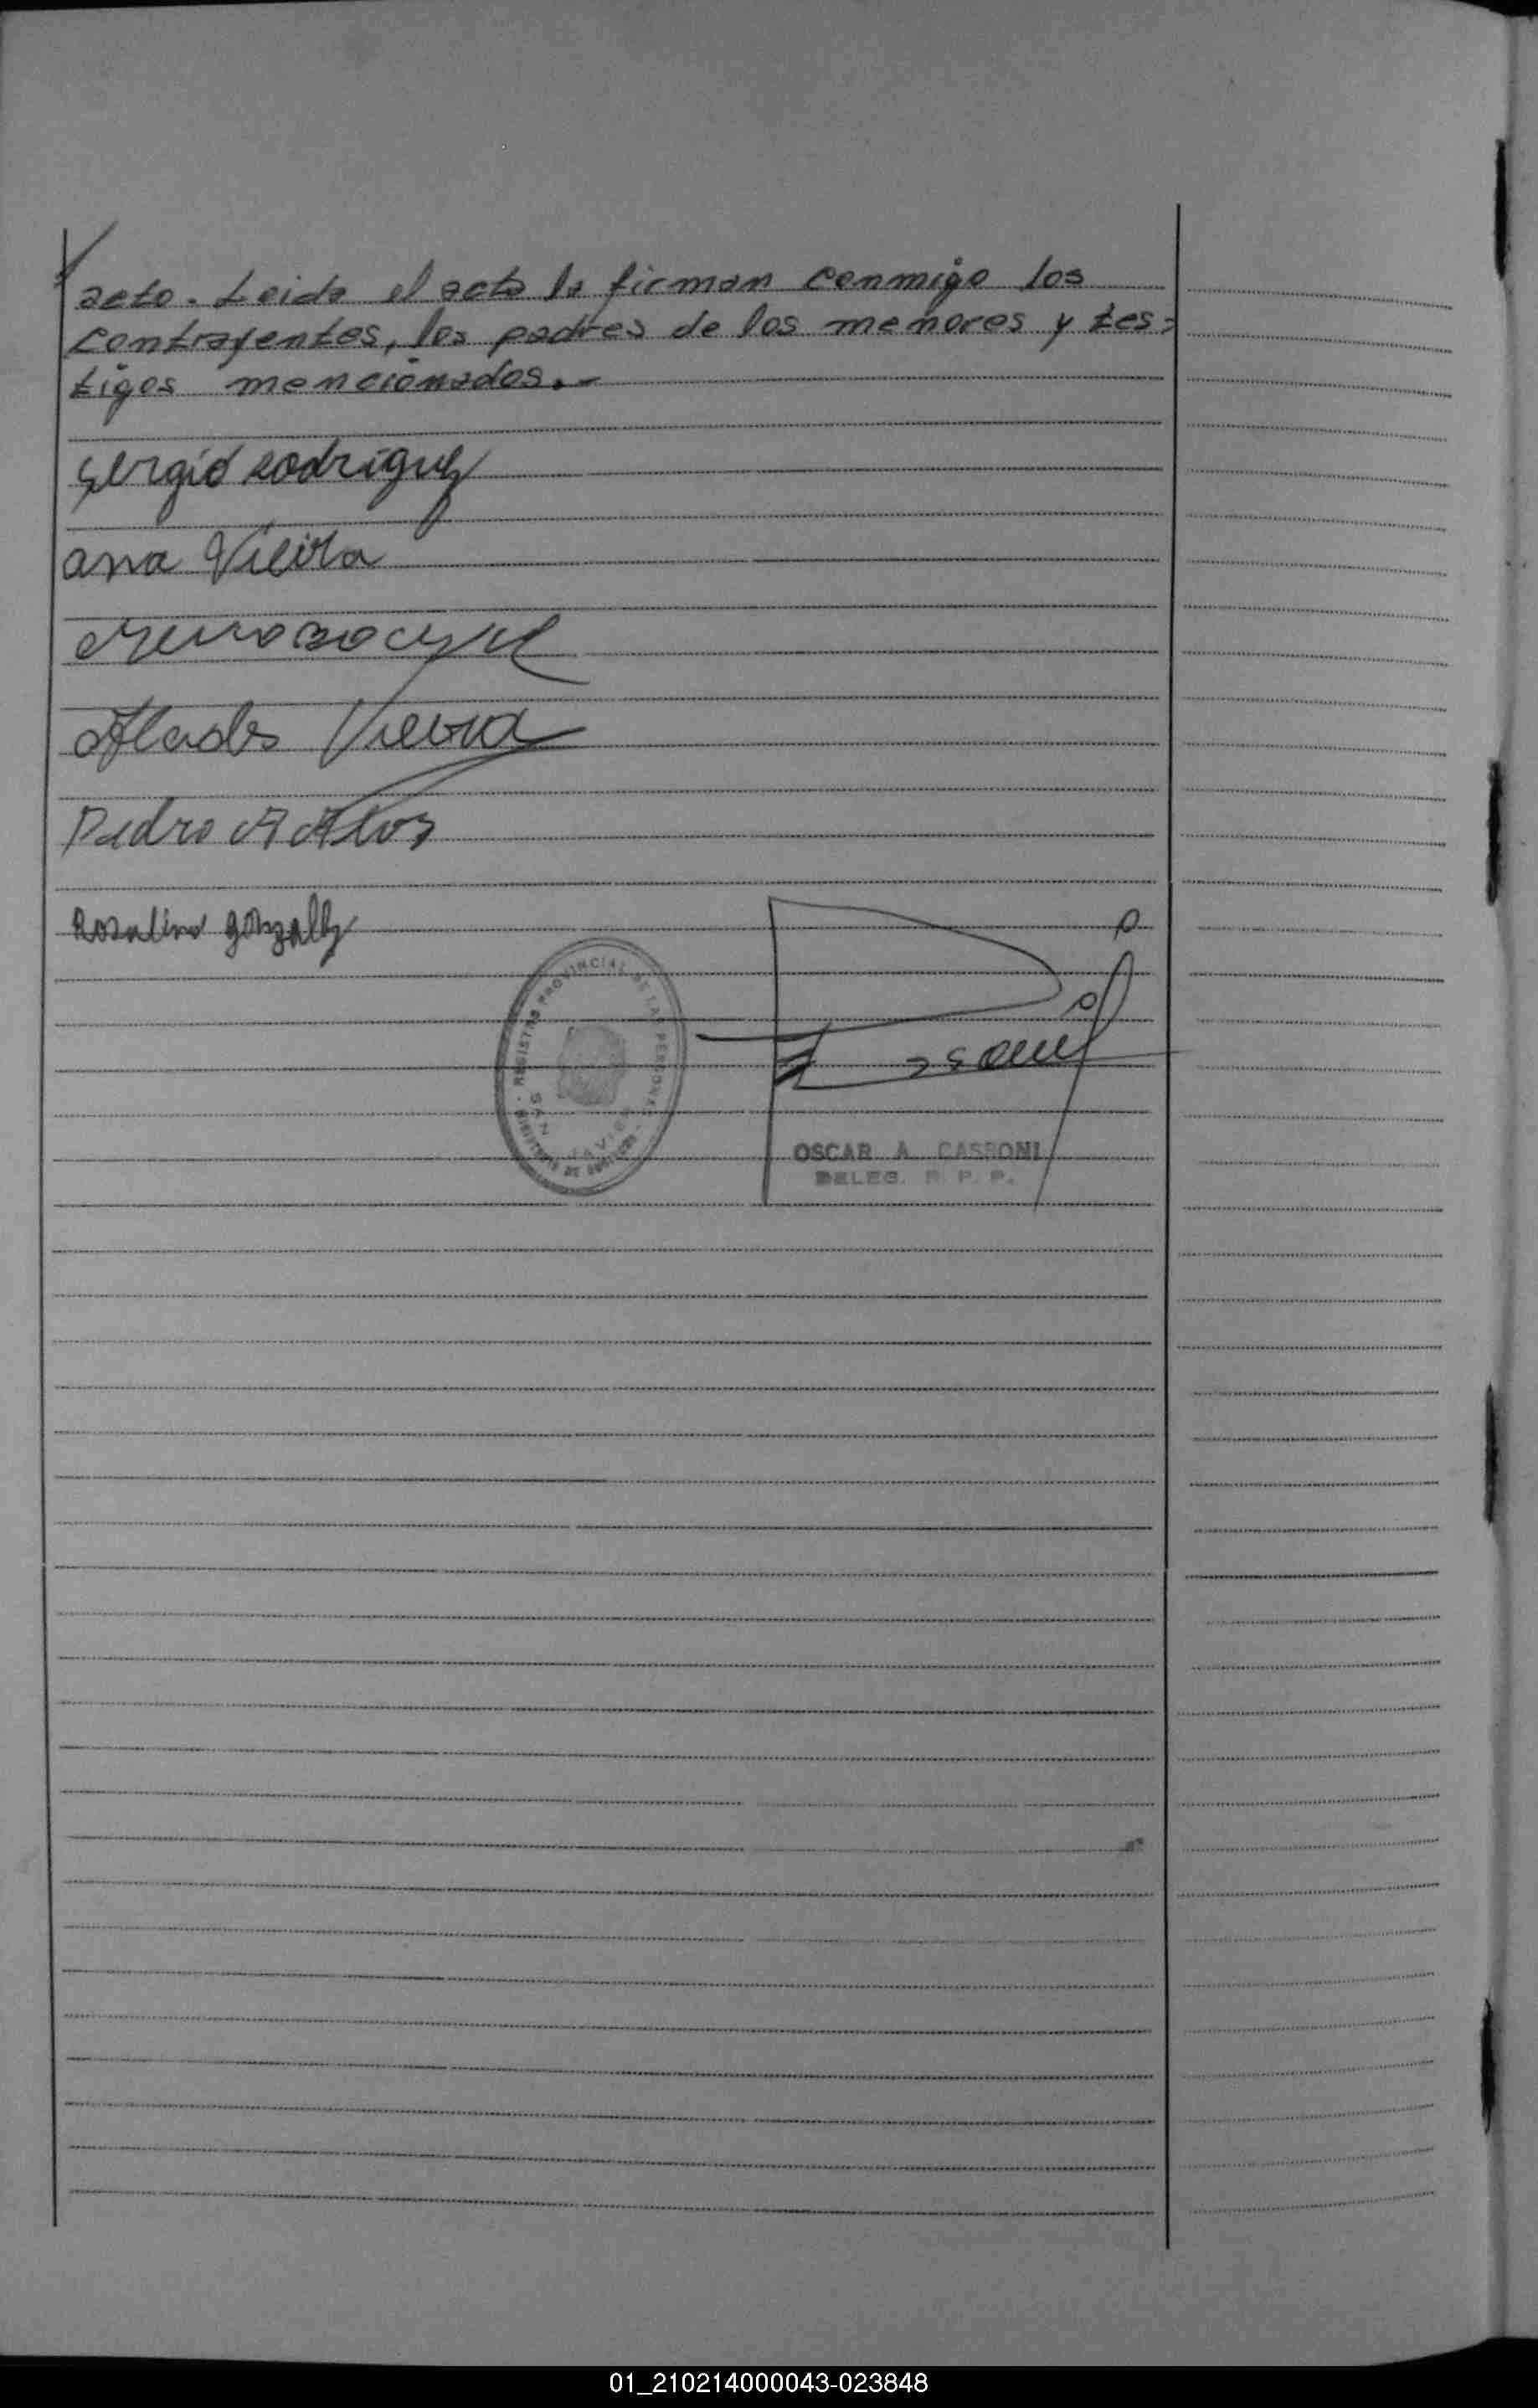 acto. Leida el acta la firman conmigo los
contrayentes, los padres de los menores y tes=
tigos mencionados.-
Sergio Rodriguez
Ana Vieira
Vieira
Pedro A Alves
Rosalino Gonzalez
REGISTRO PROVINCIAL DE LAS PERSONAS
SAN JAVIER
OSCAR A. CASSONI
DELEG. R. P. P.
01_210214000043-023848